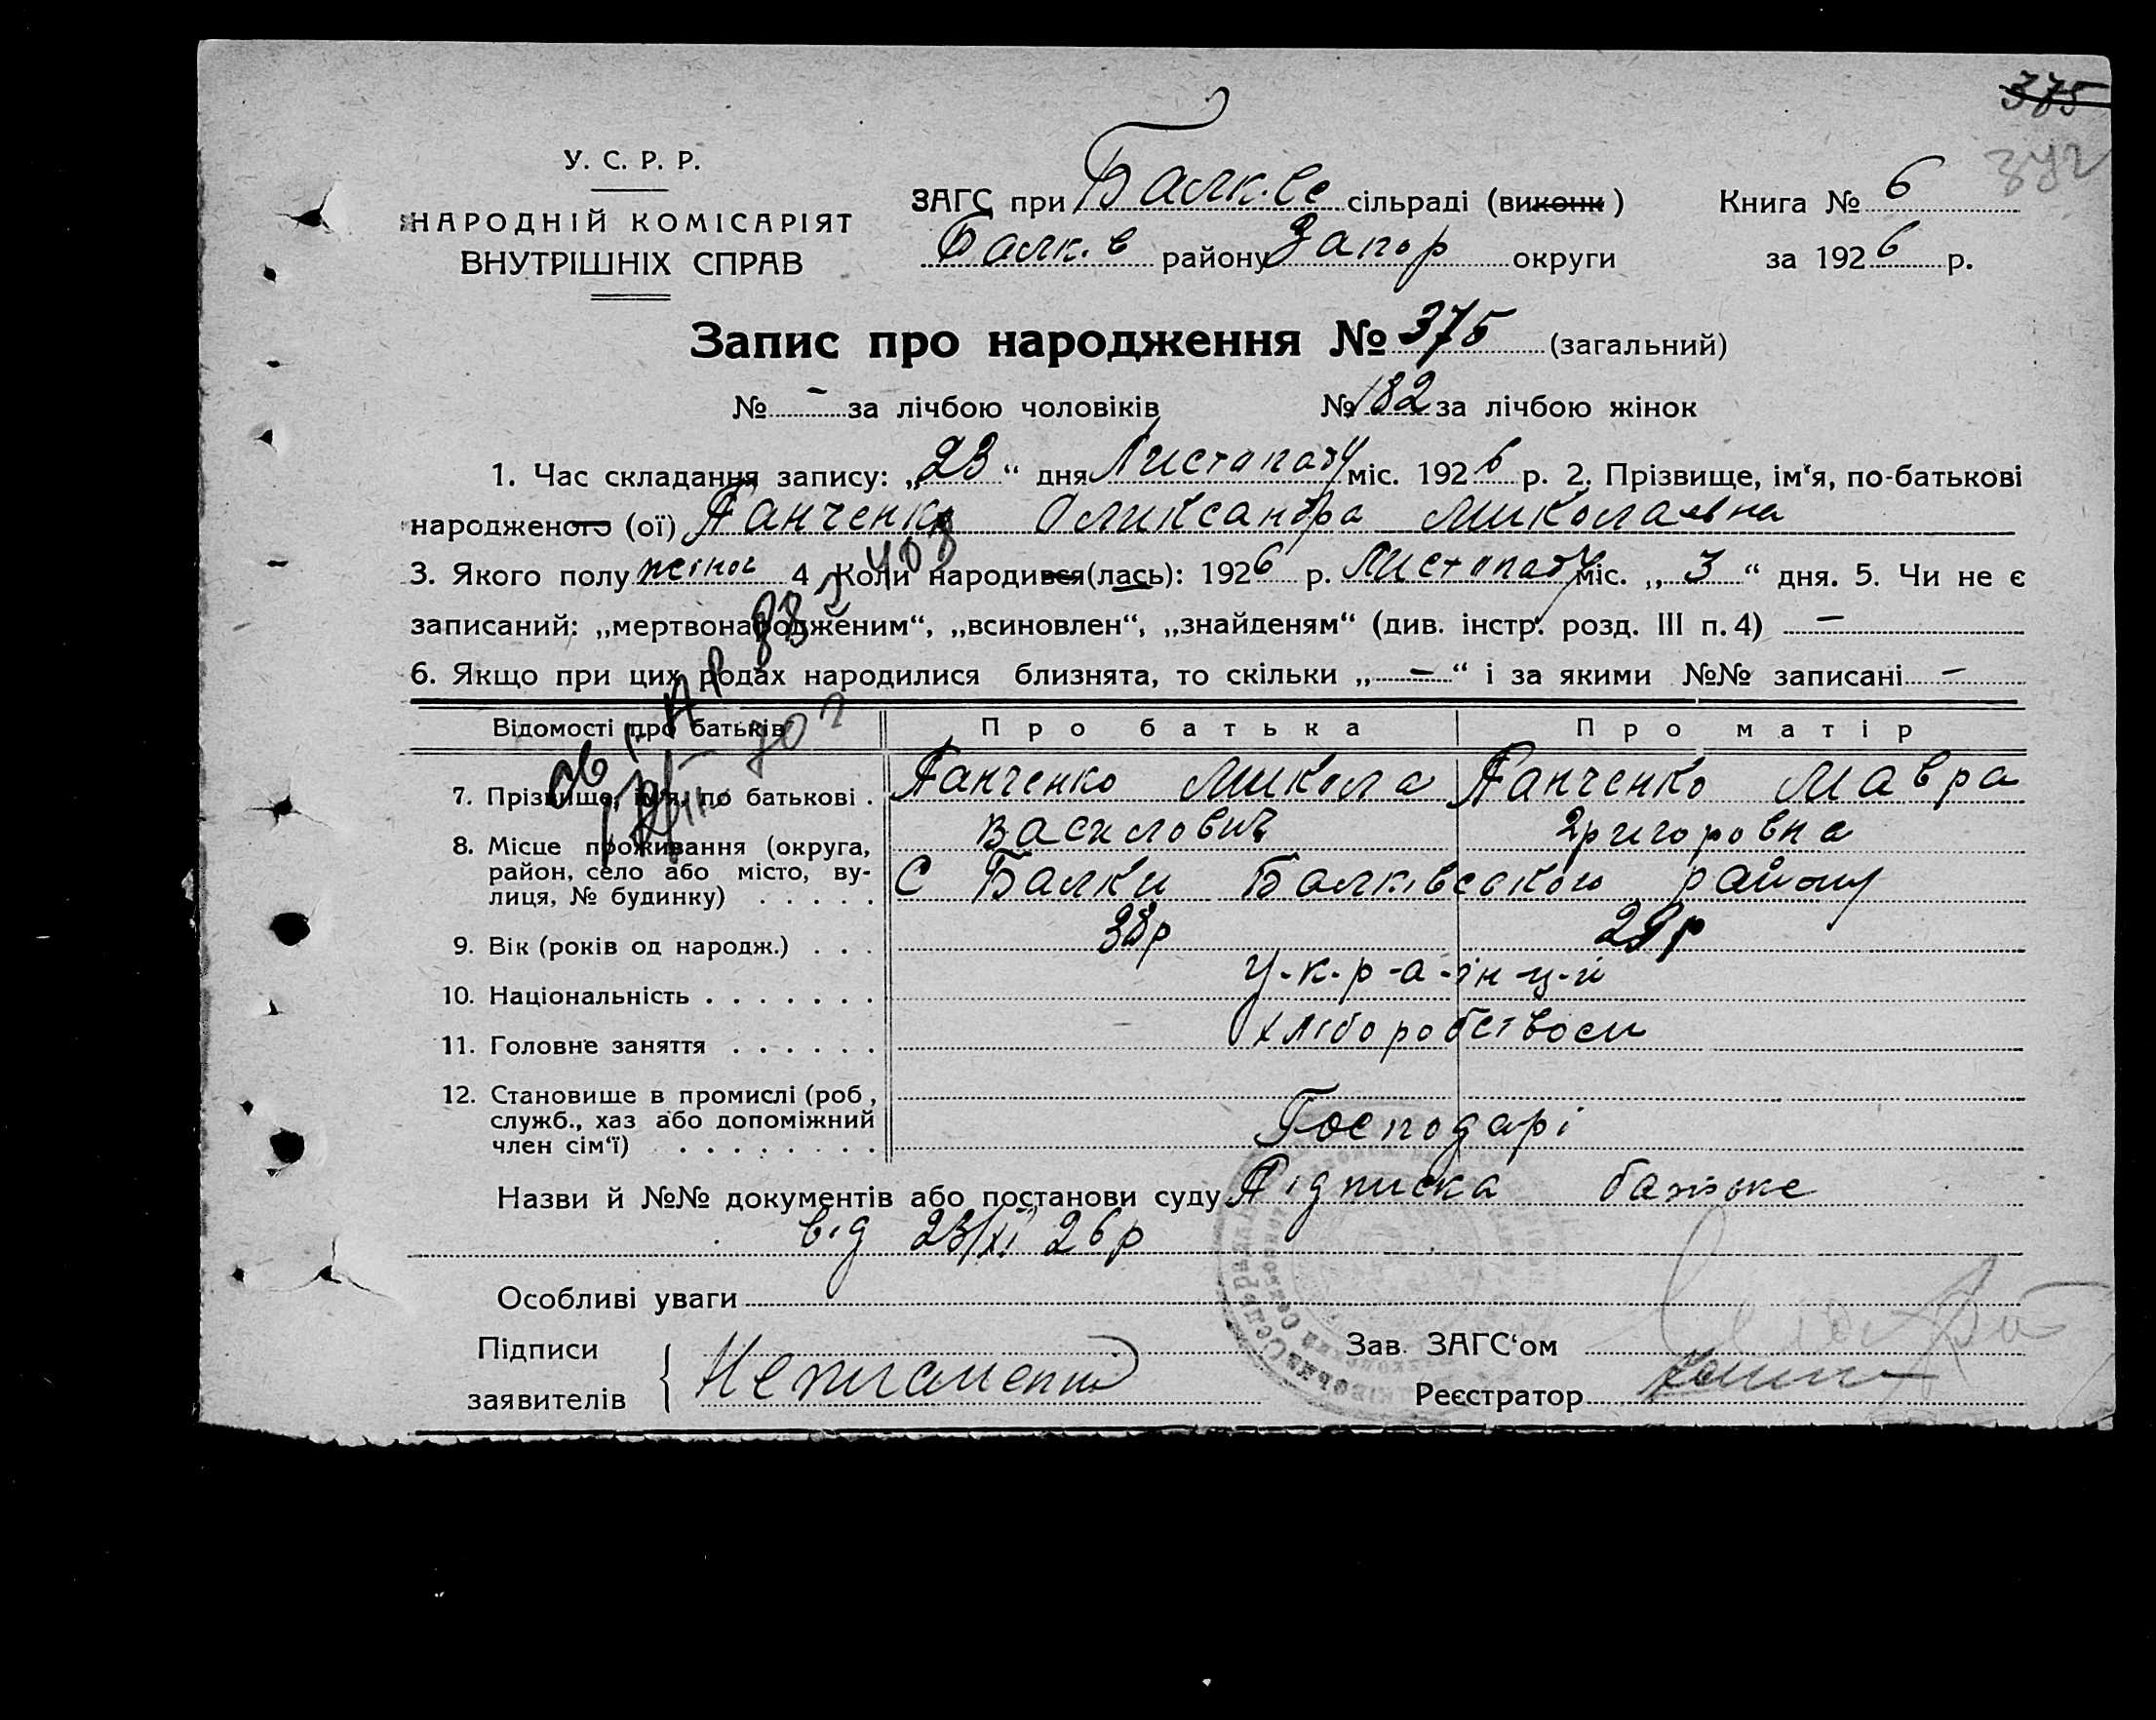 375
У. С. Р. Р.
НАРОДНІЙ КОМІСАРІЯТ
ВНУТРІШНІХ СПРАВ
ЗАГС при Балк. Се сільраді (викони)
Балк. в району Запор округи
Книга № 6
за 1926 р.
Запис про народження № 375 (загальний)
№ - за лічбою чоловіків № 182 за лічбою жінок
1. Час складання запису: „23“ дня Листопаду міс. 1926 р. 2. Прізвище, ім‘я, по-батькові
народженого (ої) Панченко Олександра Миколаевна
3. Якого полу жіноч 4 Коли народився(лась): 1926 р. Листопаду міс. „3“ дня. 5. Чи не є
записаний: „мертвонародженим“, „всиновлен“, „знайденям“ (див. інстр. розд. III п. 4) —
6. Якщо при цих родах народилися близнята, то скільки „—“ і за якими №№ записані —
Відомості про батьків Про батька Про матір
7. Прізвище, ім‘я, по батькові . Панченко Микола Панченко Мавра
Василович Григоровна
8. Місце проживання (округа,
район, село або місто, ву-
лиця, № будинку) . . . . . С Балки Балківського району
9. Вік (років од народж.) . . . 38р 29р
10. Національність . . . . . . . У-к-р-а-їн-ц-и
11. Головне заняття . . . . . . хліборобством
12. Становище в промислі (роб,
служб., хаз або допоміжний
член сім‘ї) . . . . . . . . Господарі
Назви й №№ документів або постанови суду Підписка батьке
від 23/XI 26р
Особливі уваги
Підписи
заявителів Неписменні
Зав. ЗАГС‘ом
Реєстратор